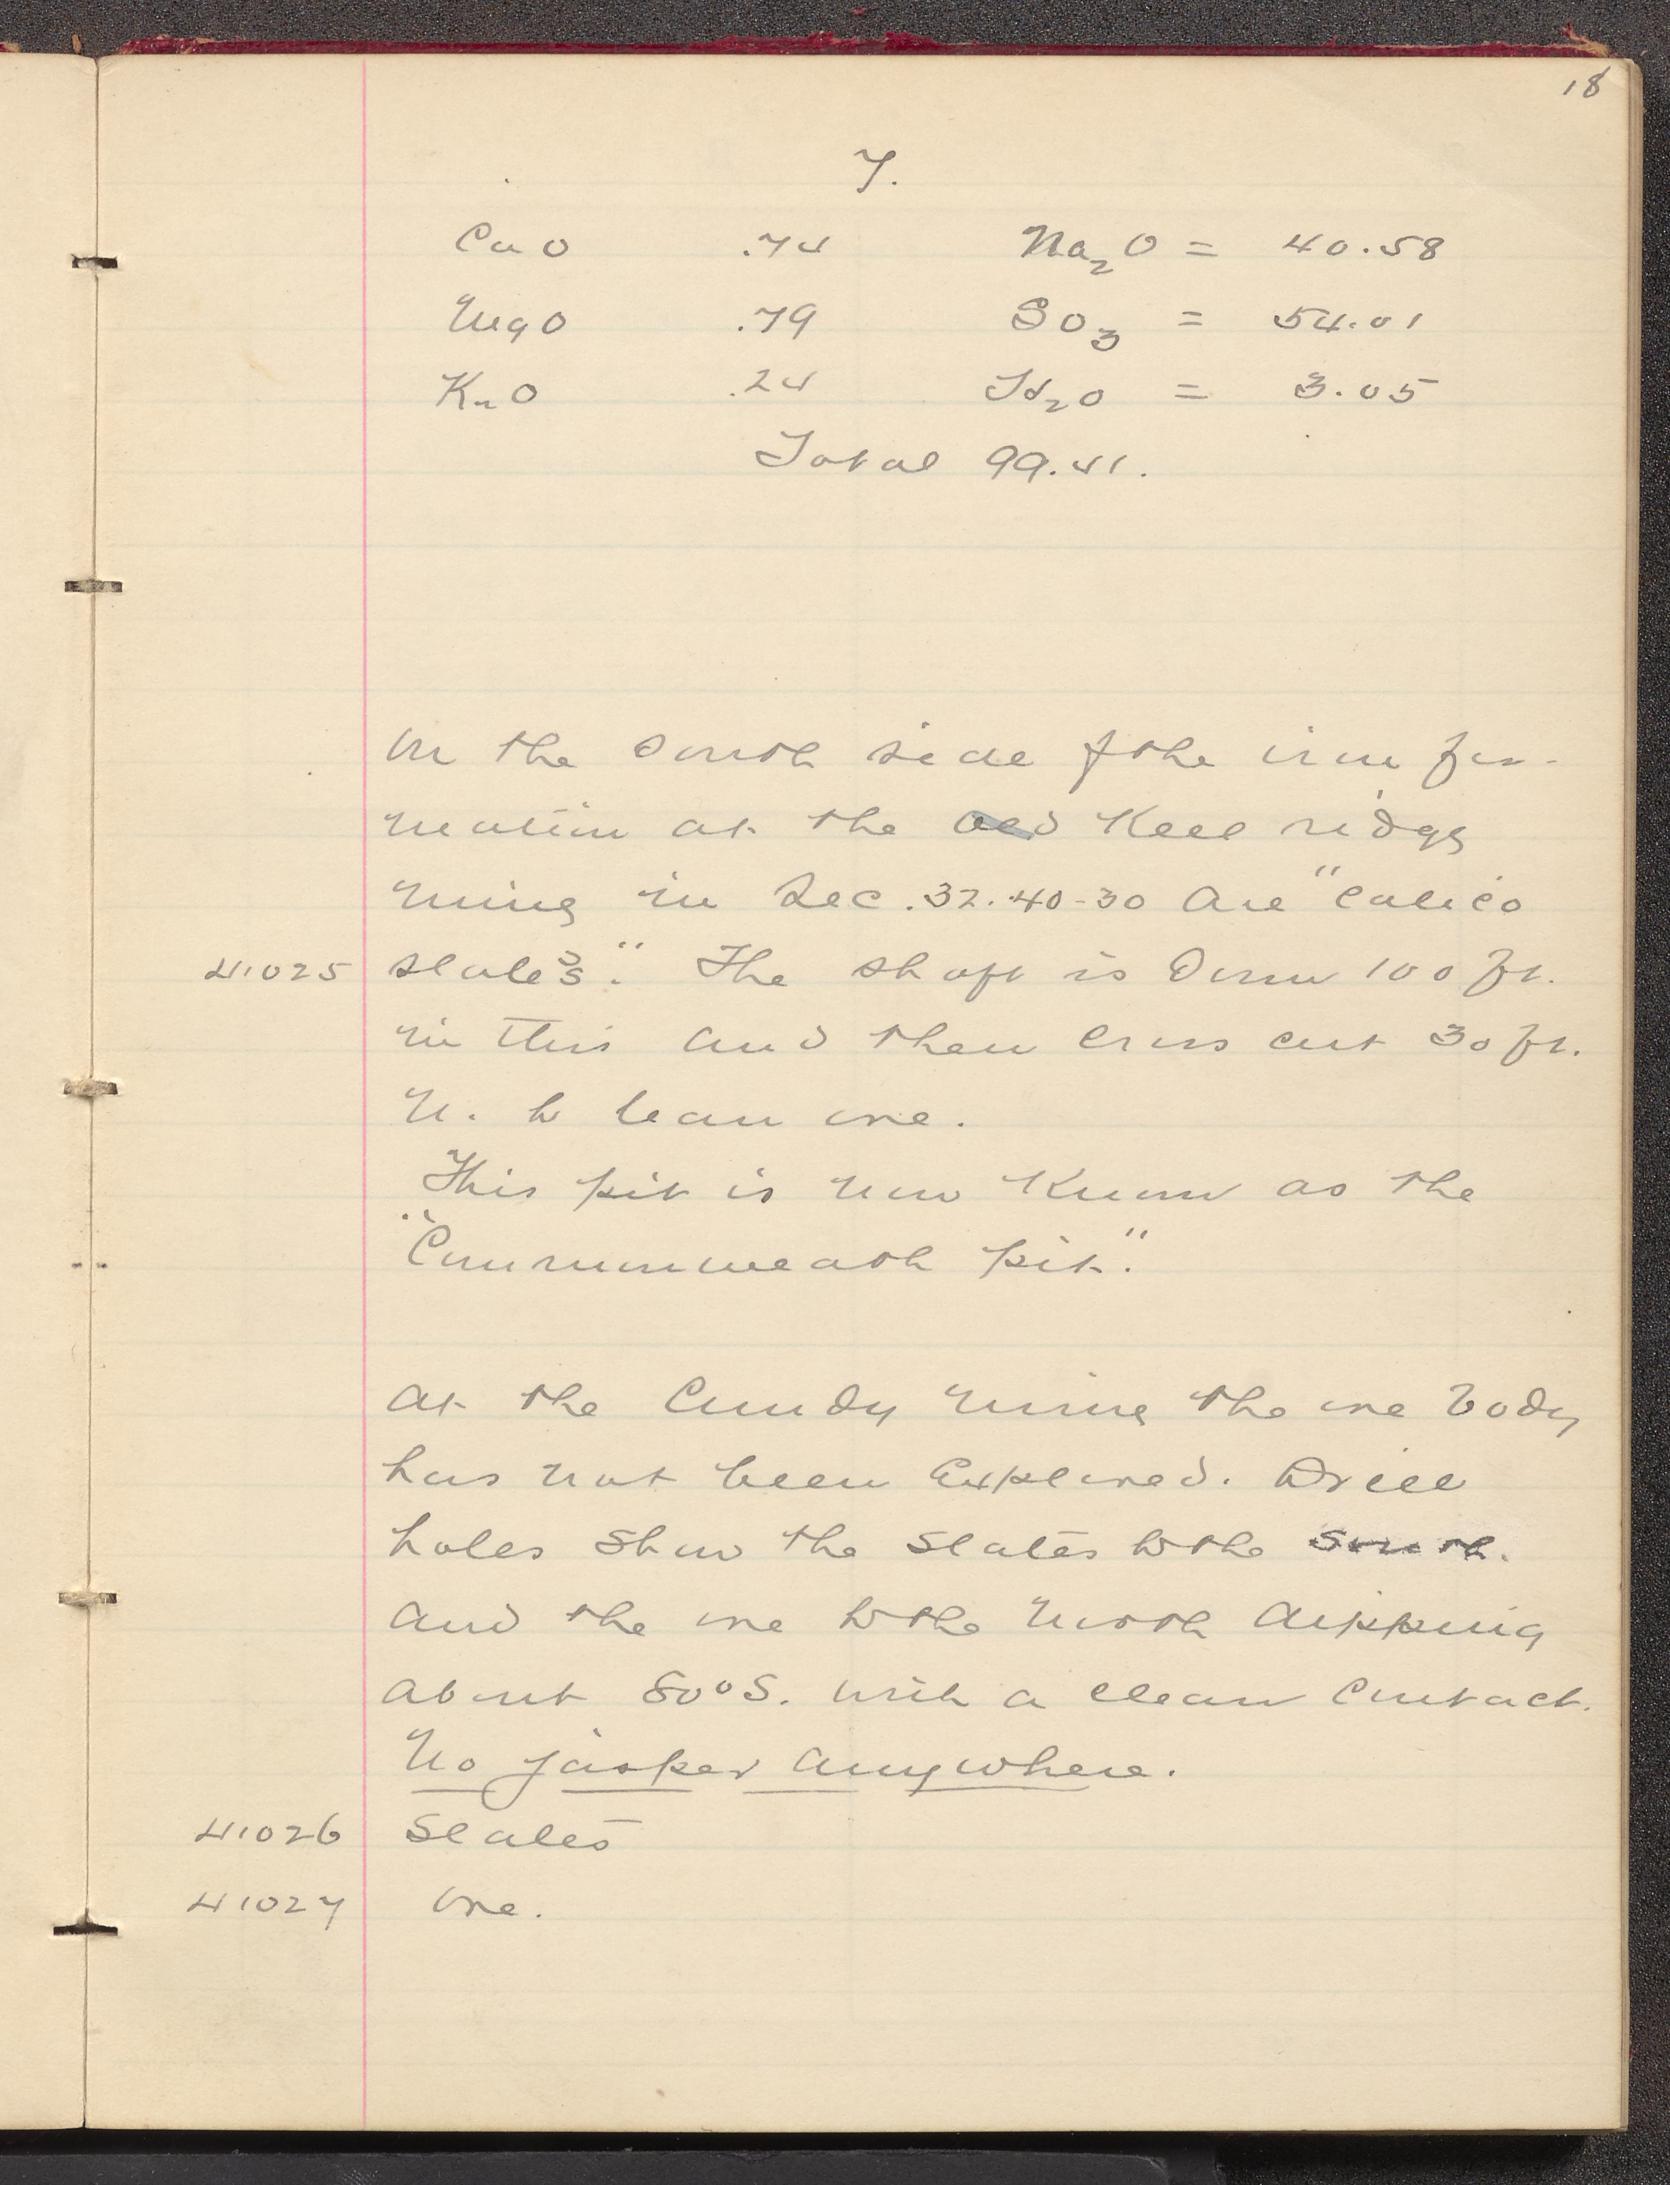 18
7.
CaO .74 Na2O = 40.58
MgO .79 SO3 = 54.01
K2O .24 H2O = 3.05
Total 99.41.
On the South side of the iron for-
mation at the old Keel ridge
mine in Sec. 32.40-30 are "calico
41025 slates". The shaft is Down 100 ft.
in this and then cross cut 30 ft.
N. to lean ore.
This pit is now Known as the
"Commonweath pit."
At the Cundy mine the ore body
has not been Explored. Drill
holes show the slates to the South.
and the ore to the North dipping
about 80° S. with a clean contact.
No jasper anywhere.
41026 Slates
41027 Ore.